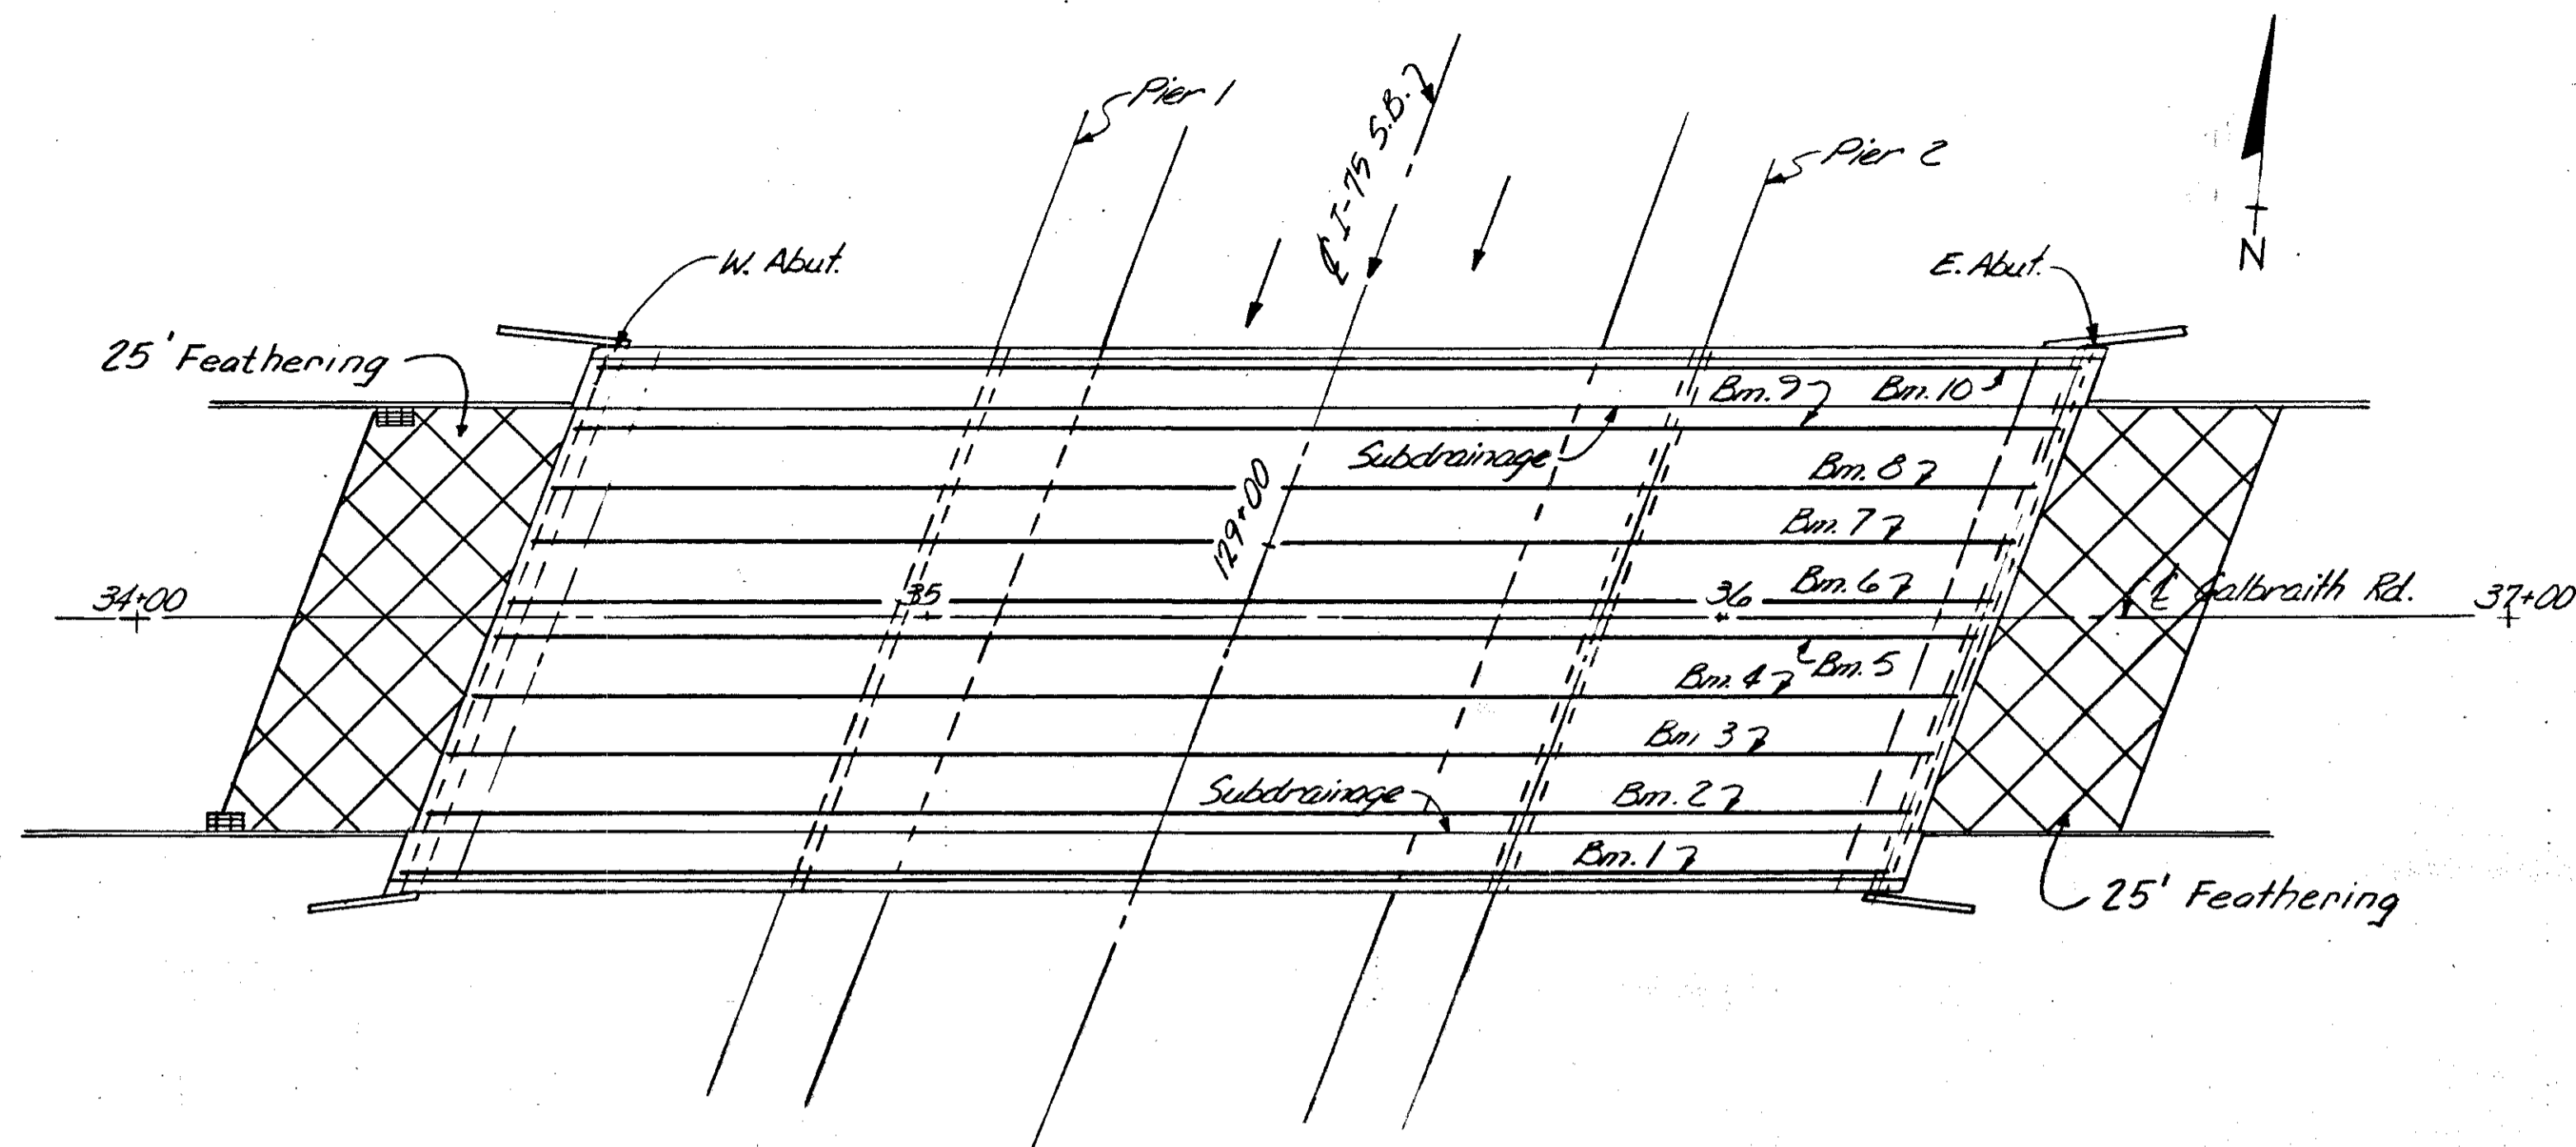 Pier 1
℄ I-75 S.B.
Pier 2
N
W. Abut.
E. Abut.
25' Feathering
Bm. 9
Bm. 10
Subdrainage
Bm. 8
129+00
Bm. 7
34+00
35
36
Bm. 6
℄ Galbraith Rd.
37+00
Bm. 5
Bm. 4
Bm. 3
Subdrainage
Bm. 2
Bm. 1
25' Feathering